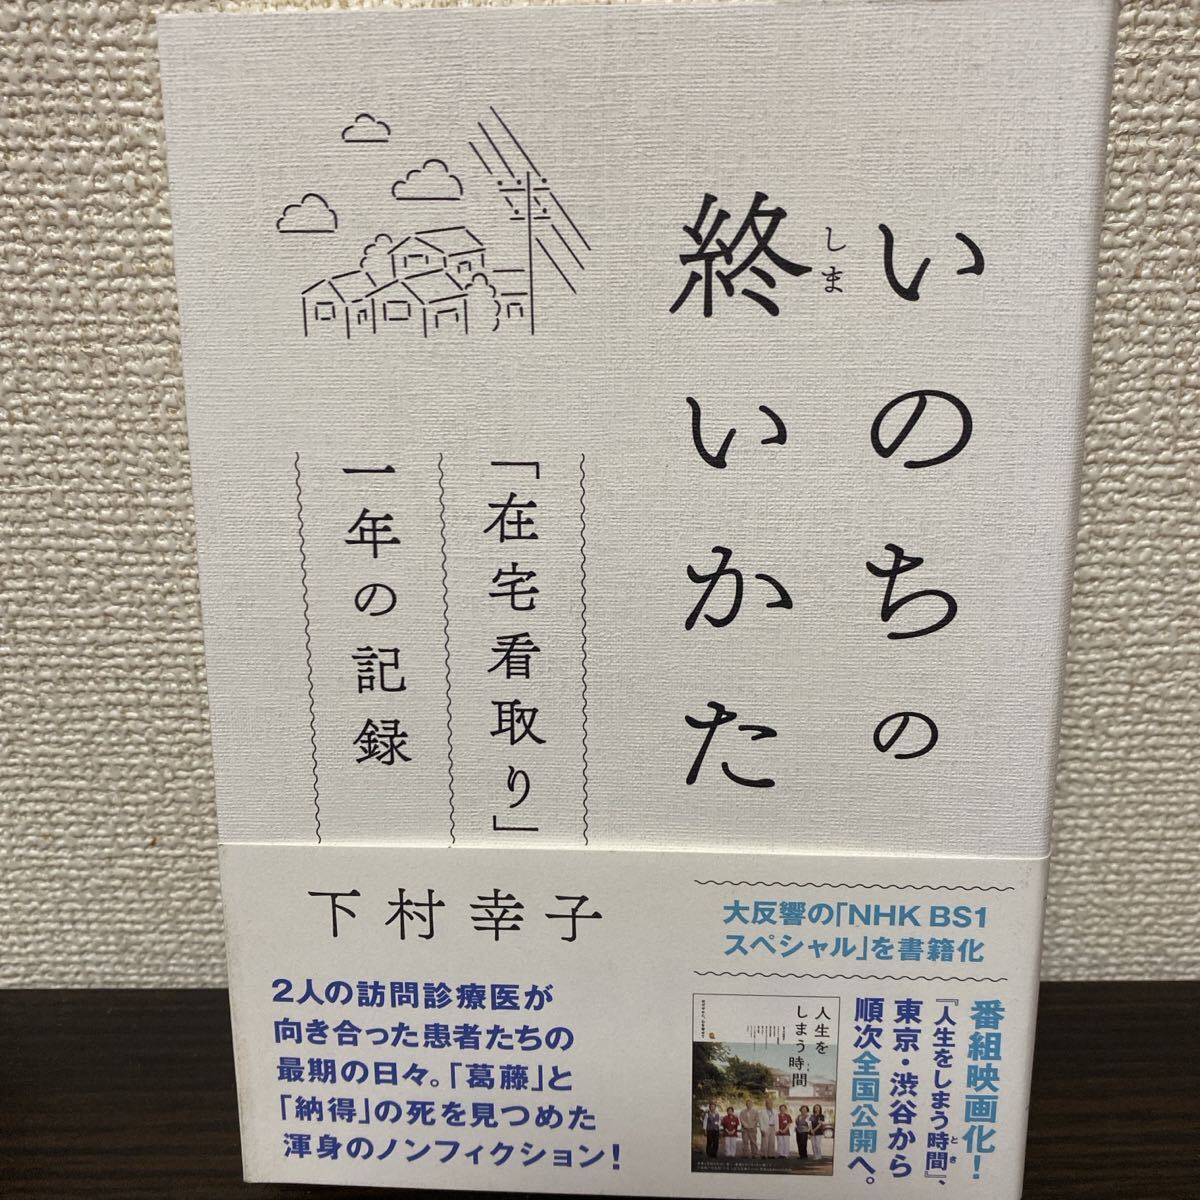 いのちの
終いかた
しま
「在宅看取り」
一年の記録
下村幸子
大反響の「NHK BS1
スペシャル」を書籍化
2人の訪問診療医が
向き合った患者たちの
最期の日々。「葛藤」と
「納得」の死を見つめた
渾身のノンフィクション！
番組映画化！
『人生をしまう時間』、
とき
東京・渋谷から
順次全国公開へ。
人生を
しまう時間